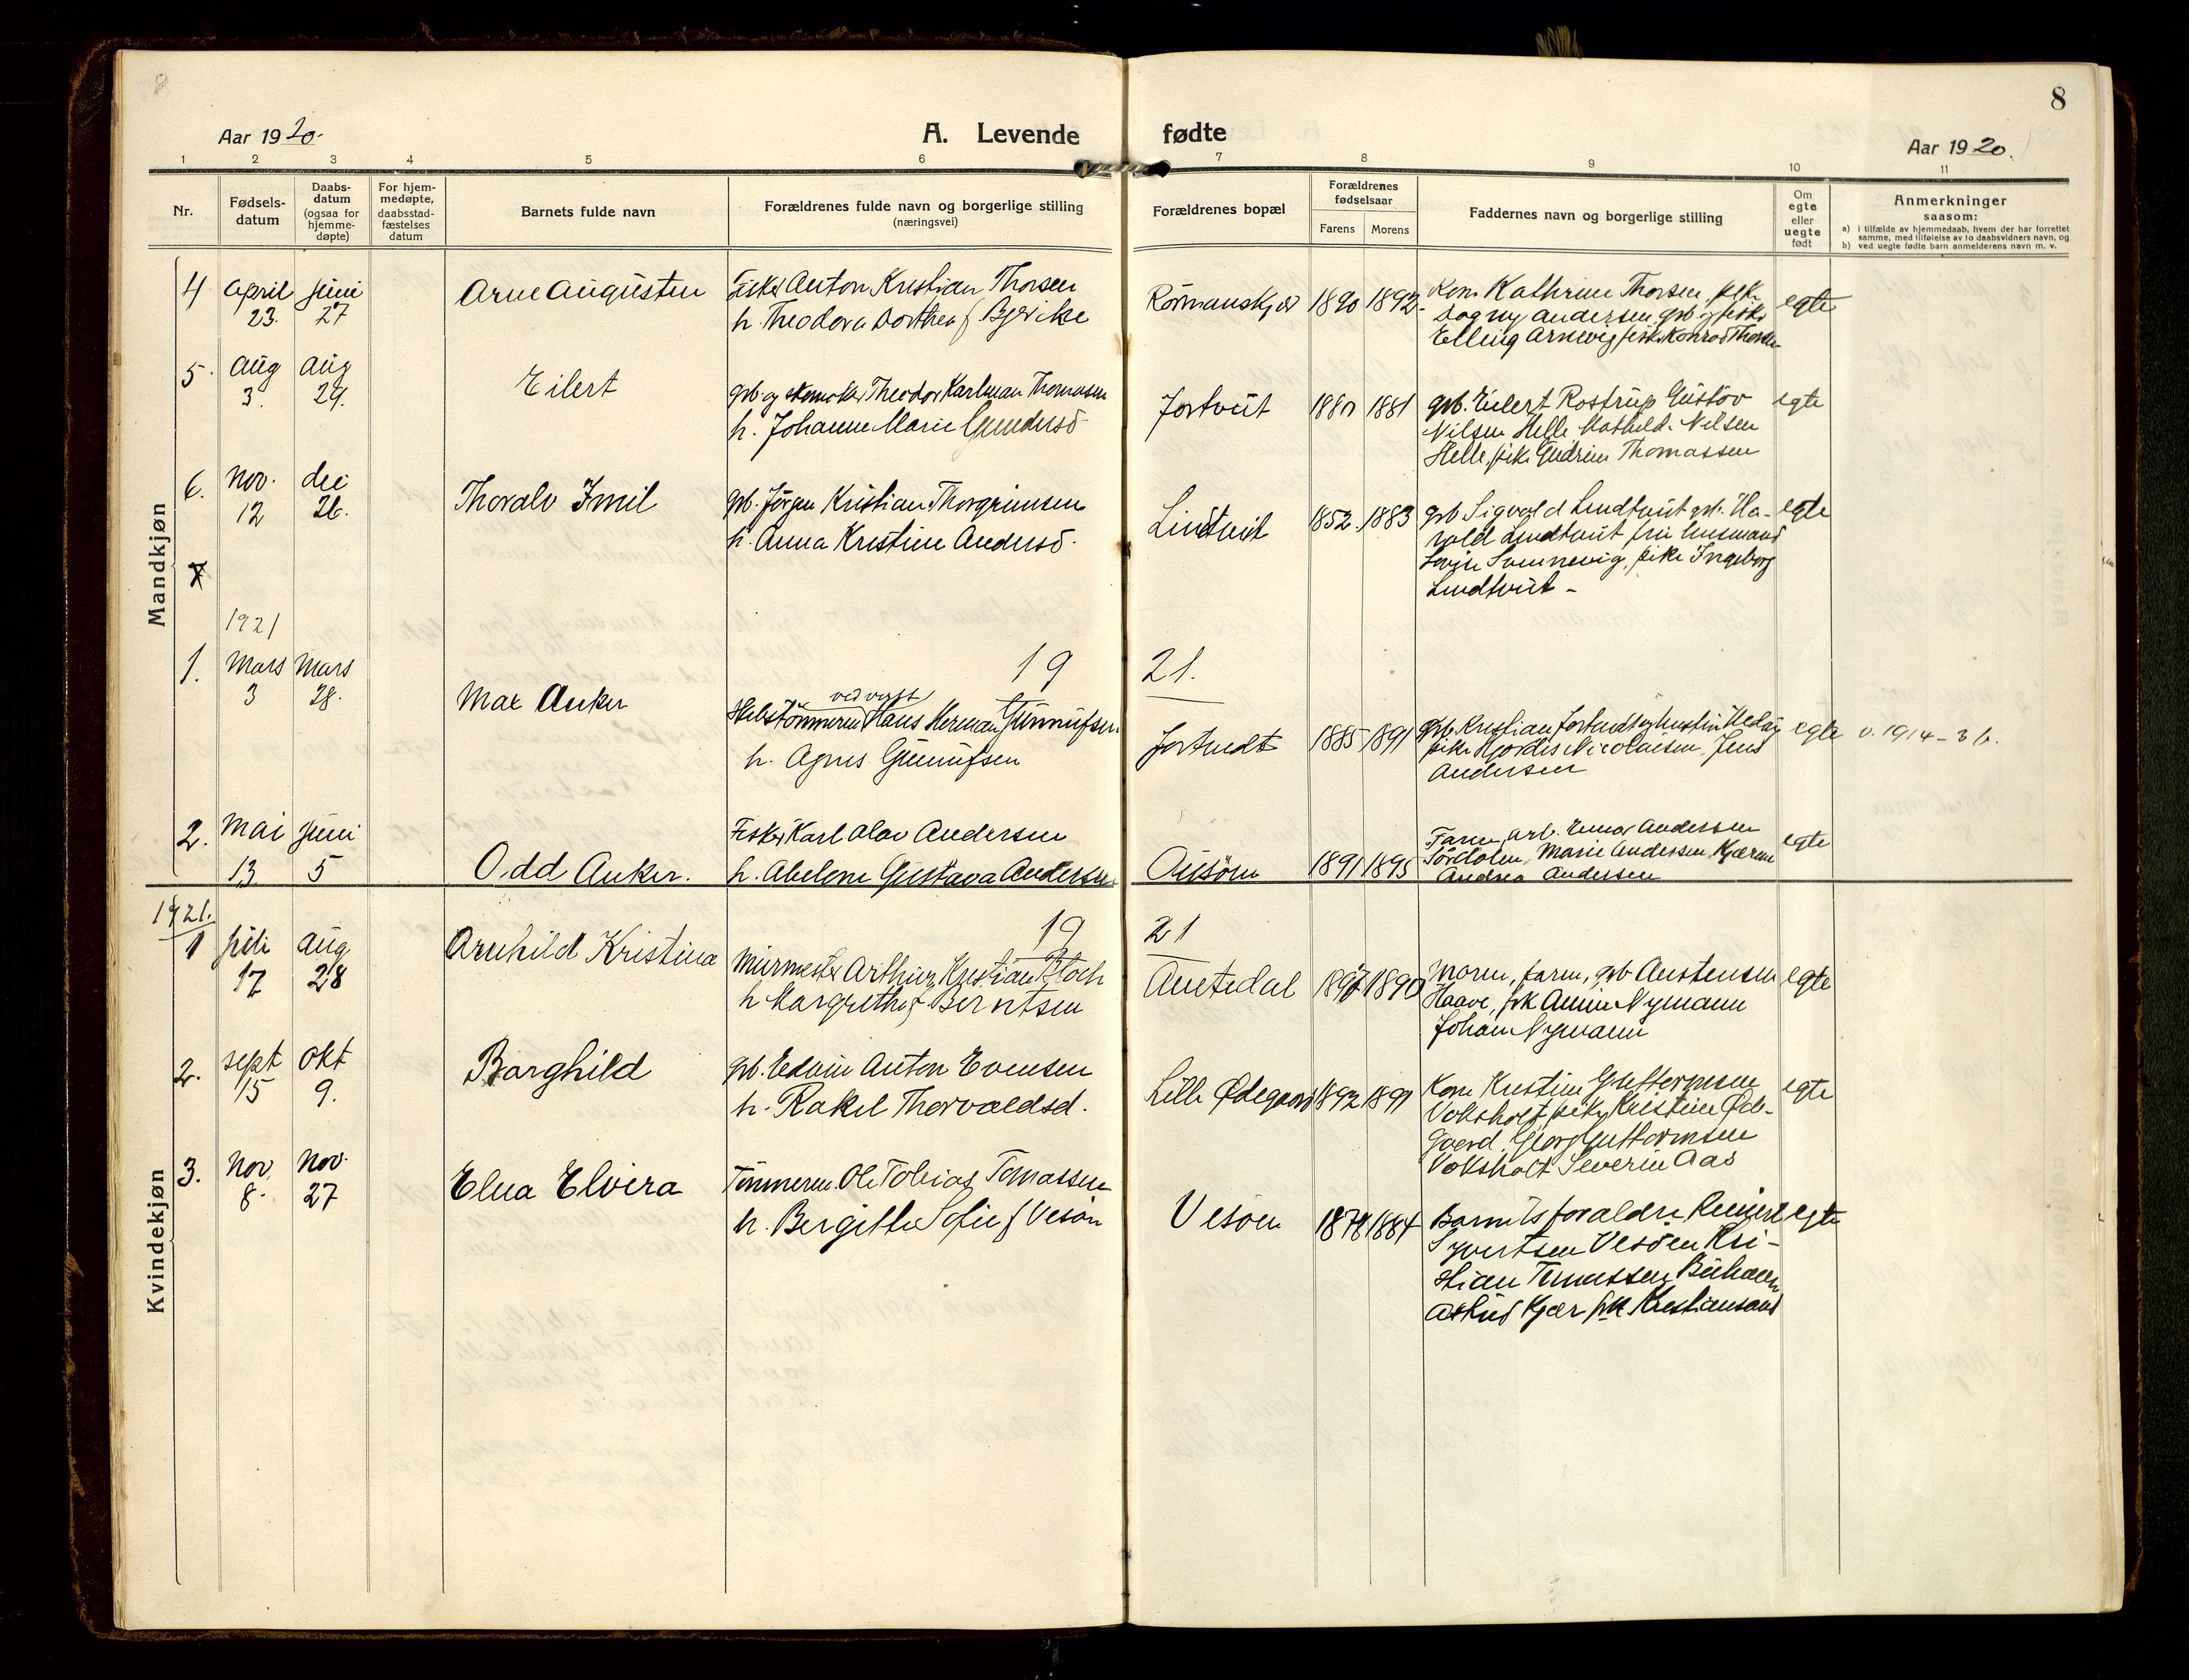 8
Aar 1920.
A. Levende fødte
Aar 1920.
1 2 3 4 5 6 7 8 9 10 11
Nr.
Fødsels-
datum
Daabs-
datum
(ogsaa for
hjemme-
døpte)
For hjem-
medøpte,
daabsstad-
fæstelses
datum
Barnets fulde navn
Forældrenes fulde navn og borgerlige stilling
(næringsvei)
Forældrenes bopæl
Forældrenes
fødselsaar
Farens Morens
Faddernes navn og borgerlige stilling
Om
egte
eller
uegte
født
Anmerkninger
saasom:
a) i tilfælde av hjemmedaab, hvem der har forrettet
samme, med tilføielse av to daabsvidners navn, og
b) ved uegte fødte barn anmelderens navn m. v.
Mandkjøn
4 April 23. Juni 27 Arne Augusten
Fisker Anton Kristian Thorsen
h. Theodora Dorthea f Bjerike
1890 1892
Kone Kathrine Thorsen, pike
Dagny Andersen, grb. og fisker
Elling Arnevig, fisk. Konrad Thorsen
egte
5. Aug 3. Aug 29. Eilert
grb og Theodor Karlman Thomassen
h. Johanne Marie Gundersd
Jortveit 1880 1881
grb. Eilert Rostrup Gustav
Nilsen Helle Mathilde Nilsen
Helle, pike Gudrun Thomassen
egte
6. Nov. 12 Dec 26. Thoralv Emil
grb. Jørgen Kristian Thorgrimsen
h. Anna Kristine Andersd.
Lindtveit 1852. 1883
grb Sigvald Lindtveit grb. Ha-
rald Lindtveit fru husmand
Sennevig, pike Ingeborg
Lindtveit -
egte
7
1921
19 21.
1. Mars 3 Mars 28. Max Anker
Hans Herman Gunnufsen
h. Agnes Gunnufsen
Jortveidt 1885 1891
grb. Kristian Jortveidt
pike Hjørdis Nicolaisen, Jens
Andersen
egte v. 1914 - 3 b.
2. Mai 13 Juni 5 Odd Anker.
Fisker Karl Olav Andersen
h. Abelone Gustava Andersen
Auesøen 1891 1895
Faren, arb. Einar Andersen
Sørdalen, Marie Andersen Kjæren
Andrea Andersen
egte
Kvindekjøn
1921.
19 21
1 Juli 17 Aug 28 Arnhild Kristine
Murmester Arthur Kristian Bloch
h Margrethe f Berntsen
Austedal 1897 1890
Moren, faren, grb Austensen
Haave, frk Anna Nymann
Johan Nymann
egte
2. Sept 15 Okt 9. Borghild
grb. Edvin Anton Evensen
h. Rakel Thorvaldsd.
Lille Ødegaard 1892 1891
Kone Kristine Guttormsen
Voksholt, pike Kristine Øde-
gaard, Georg Guttormsen
Voksholt Severin Aas
egte
3. Nov. 8. Nov. 27 Elna Elvira
Tømmerm. Ole Tobias Tomassen
h. Bergitte Sofie f Vesøen
Vesøen 1878 1884
Barnets forældre Reinert
Syvertsen Vesøen Kri-
stian Tomassen
Astrid Kjær frk Kristiansand
egte